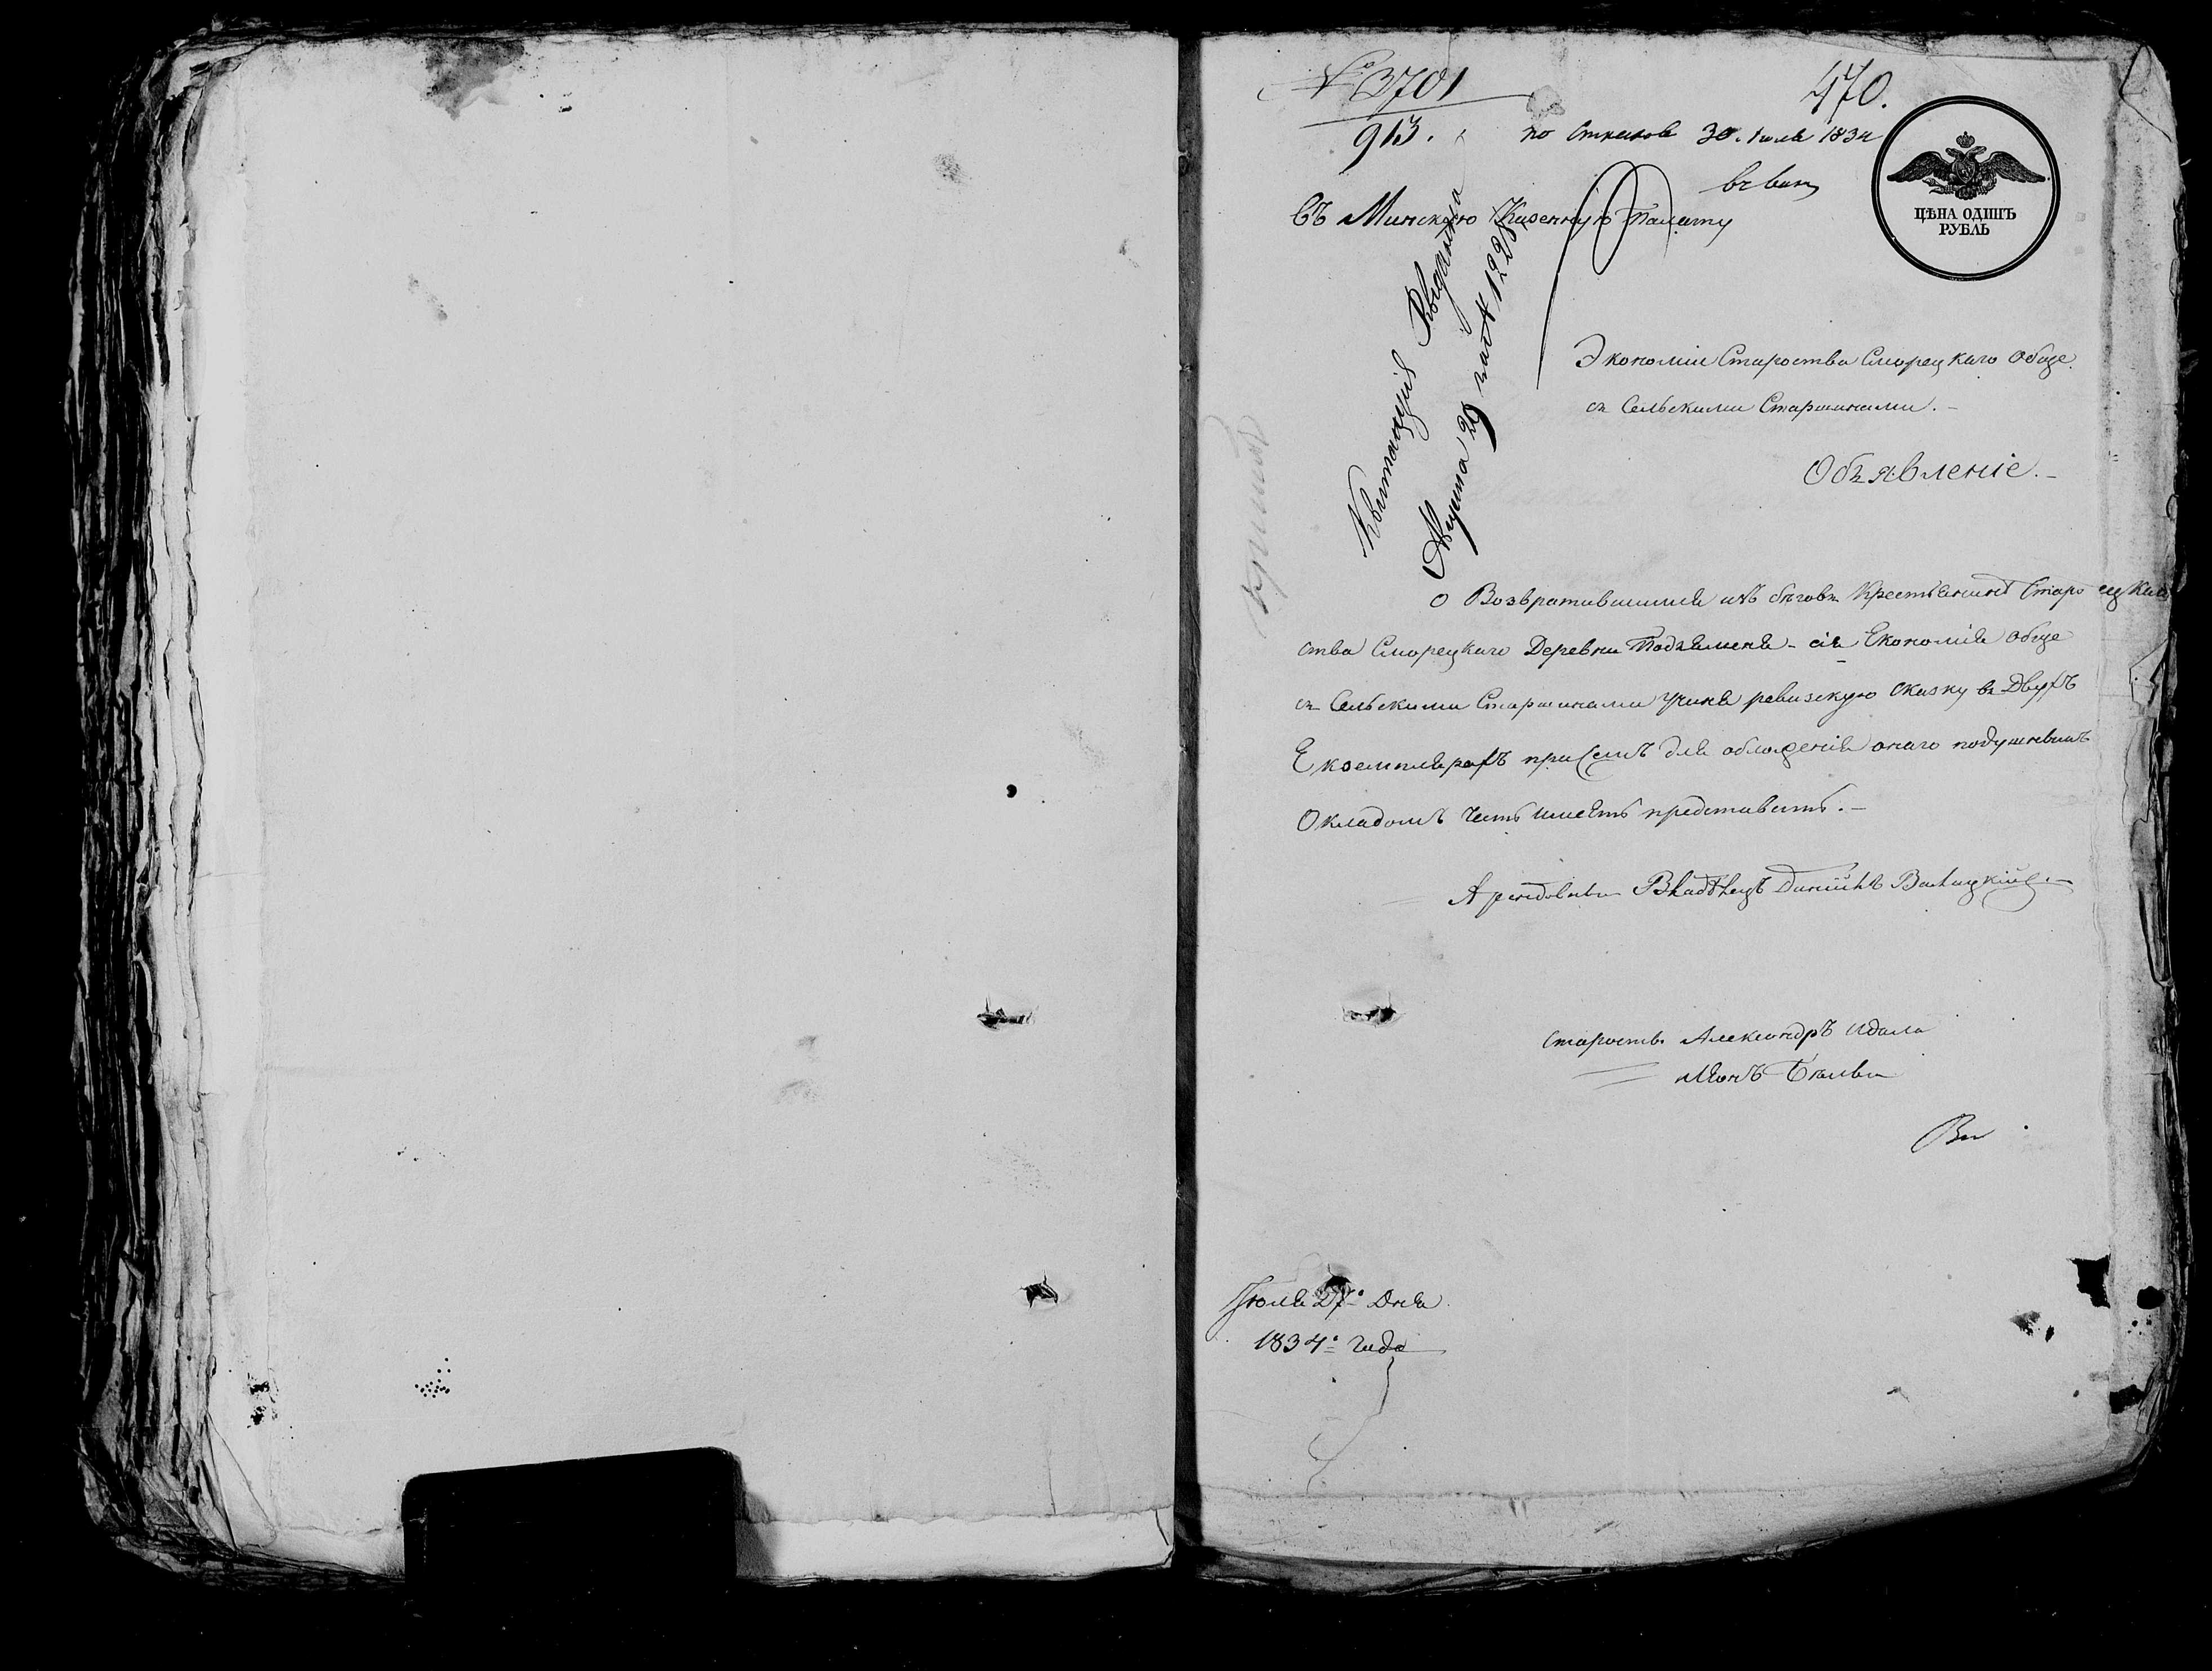 № 3701
470.
913.
по 30. Июля 1834
ЦѢНА ОДИНЪ
РУБЛЬ
Въ Минскую Казенную Палату
Квитанция выдана
Августа 29 под № 1228
Экономіи Староства Сморецкаго обще
съ Сельскими Старшинами. –
Объявленіе. –
О Возвратившимся изъ бѣговъ Крестьянинѣ Старо
ства Сморецкаго Деревни – сія Економія обще
съ Сельскими Старшинами ревизскую сказку въ Двухъ
Екземплярахъ при семъ для обложенія онаго подушнымъ
Окладомъ честь имѣетъ представить. –
Арендовны Владѣлецъ
Староста Александръ Адала
Іюля 27º Дня
1834º года